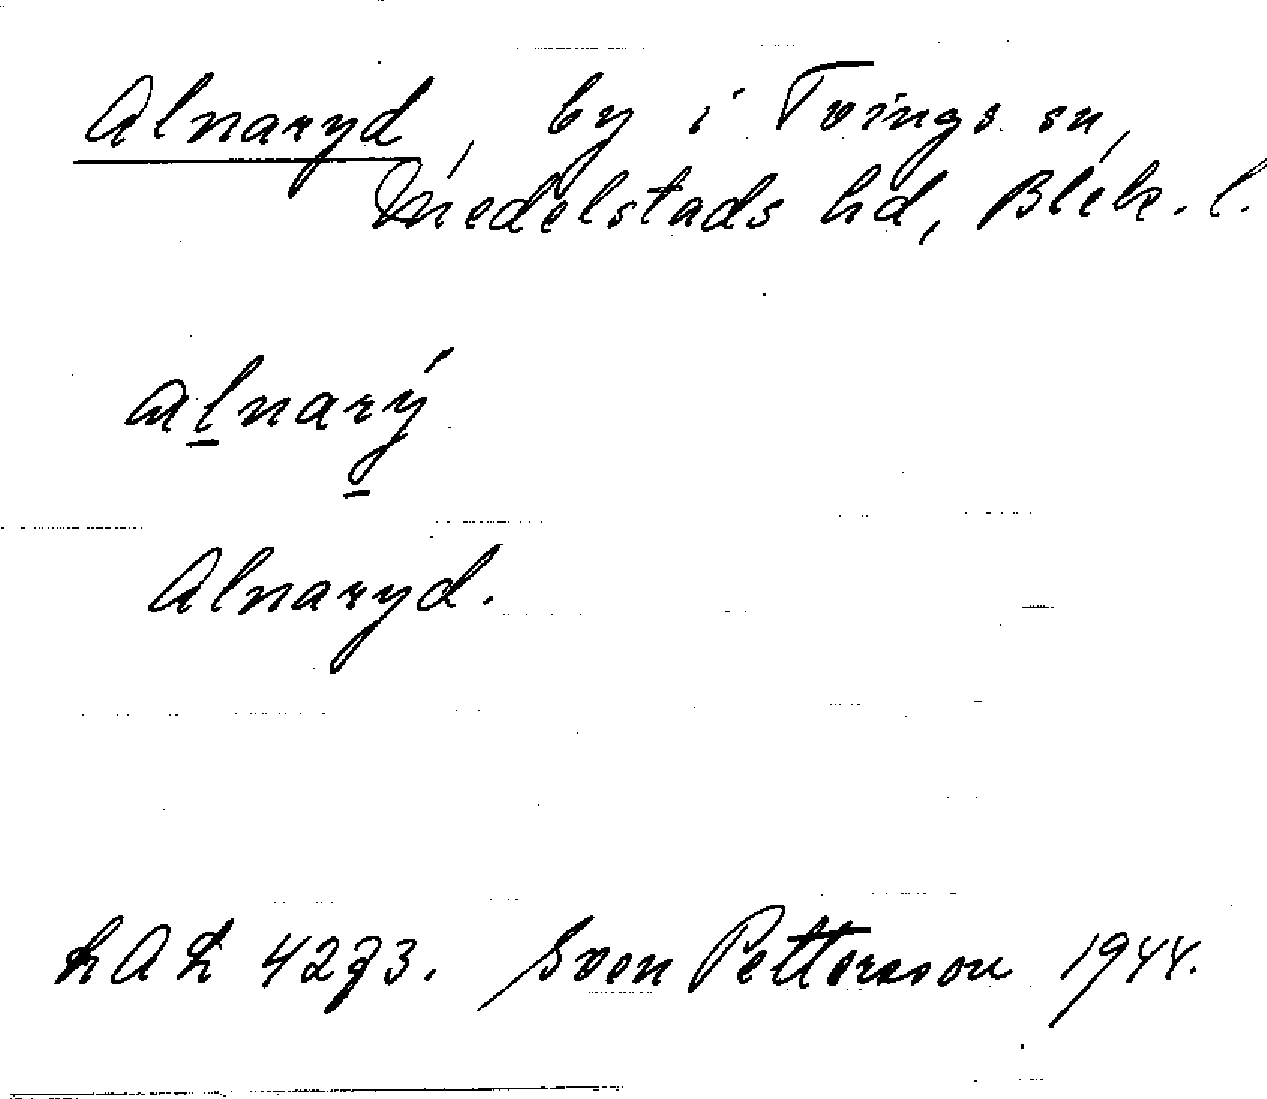 Alnaryd, by i Tvings sn,
Medelstads hd, Blek. l.
alnarý
Alnaryd.
LAL 4273. Sven Pettersson 1944.